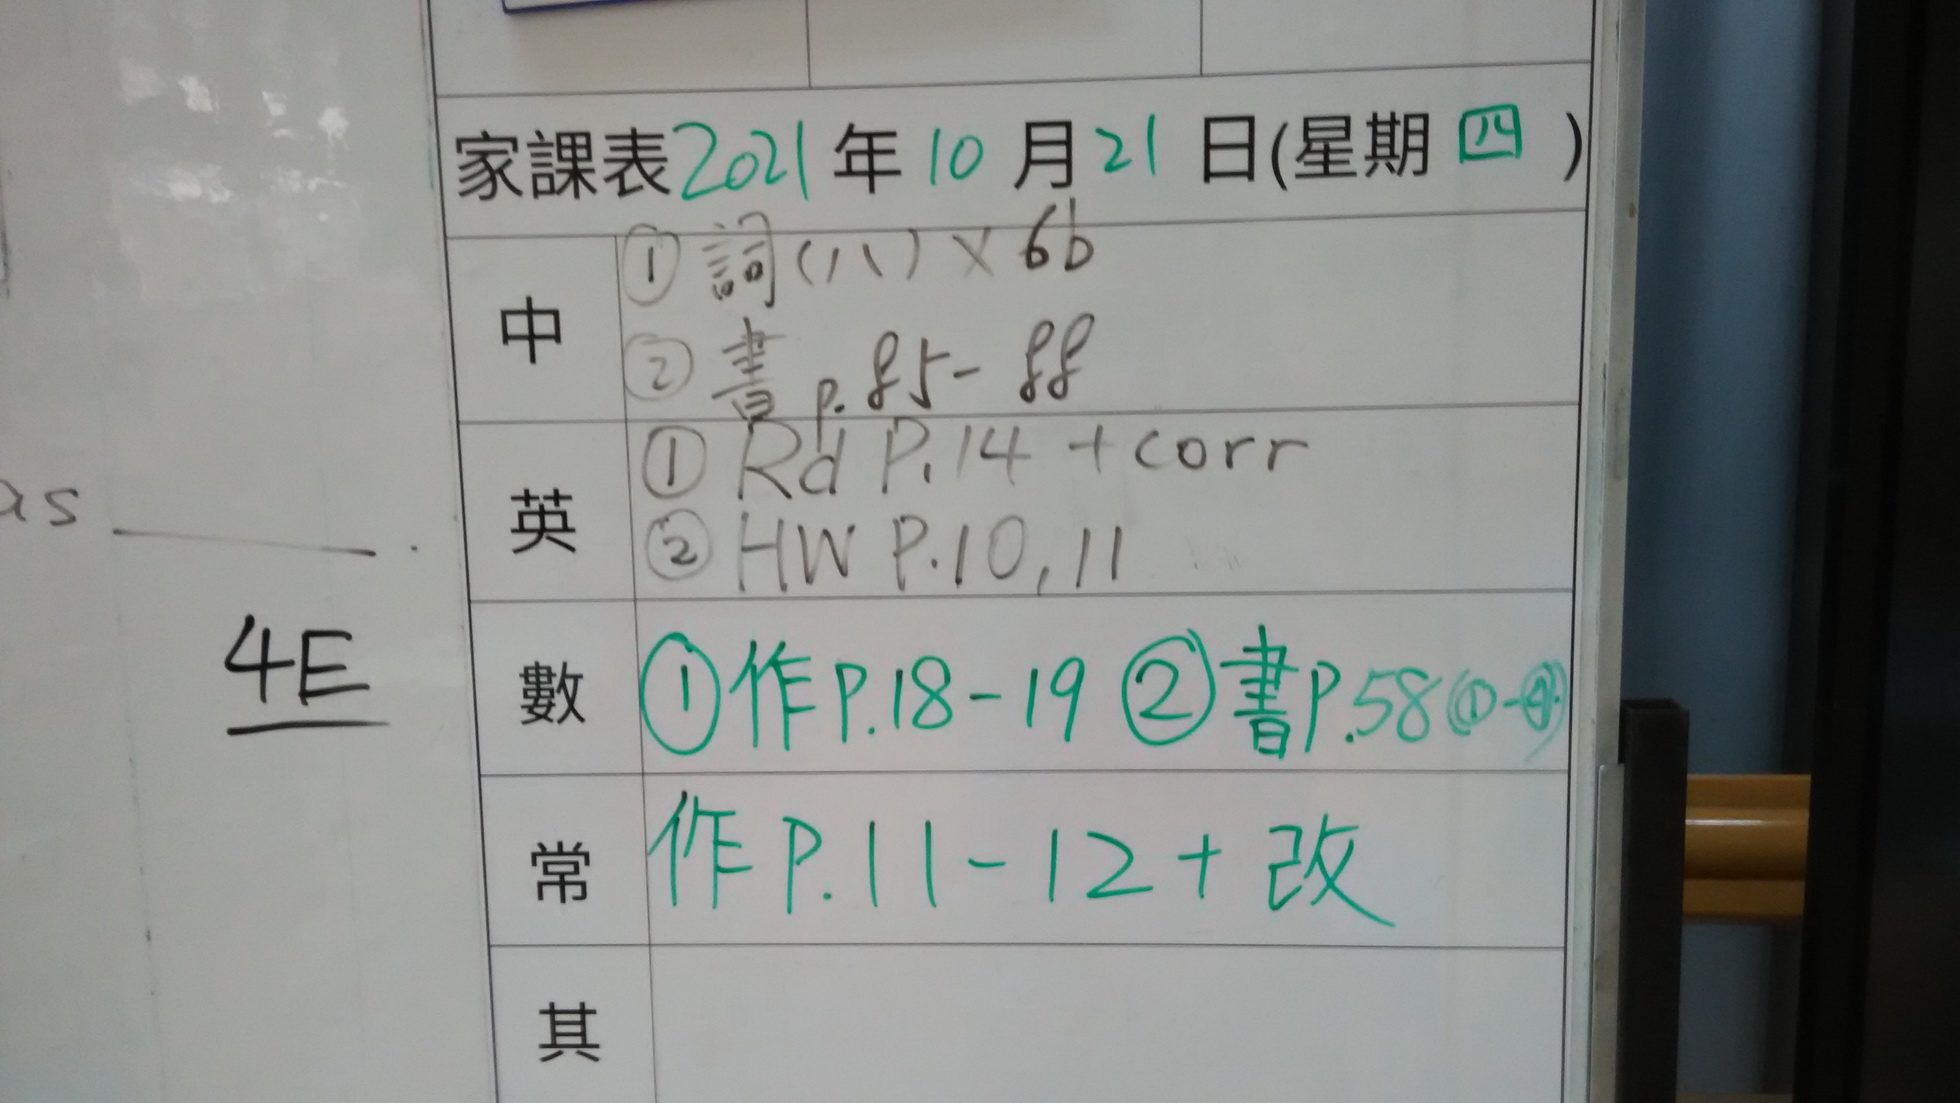 家課表2021年10月21日(星期四)
中
①詞(八)×6b
②書p.85-88
英
①Rd P.14 +corr
②HW P.10,11
as ______.
4E
數
①作P.18-19 ②書P.58
常
作P.11-12+改
其